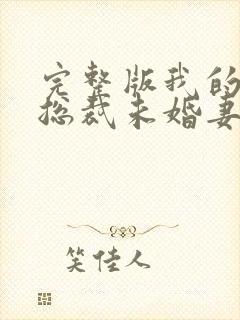 完整版我的
总裁未婚妻
笑佳人